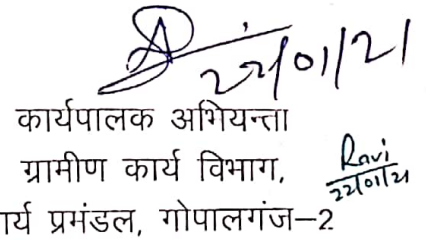 22/01/21
कार्यपालक अभियन्ता
ग्रामीण कार्य विभाग,
Ravi
22/01/21
र्य प्रमंडल, गोपालगंज-2